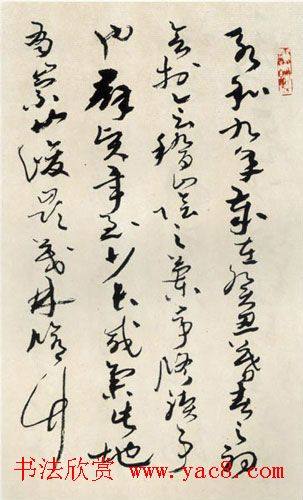 永和九年歲在癸丑暮春之初
會於會稽山陰之蘭亭脩禊事
也群賢畢至少長咸集此地
有崇山峻嶺茂林脩竹
书法欣赏 www.yac8.com